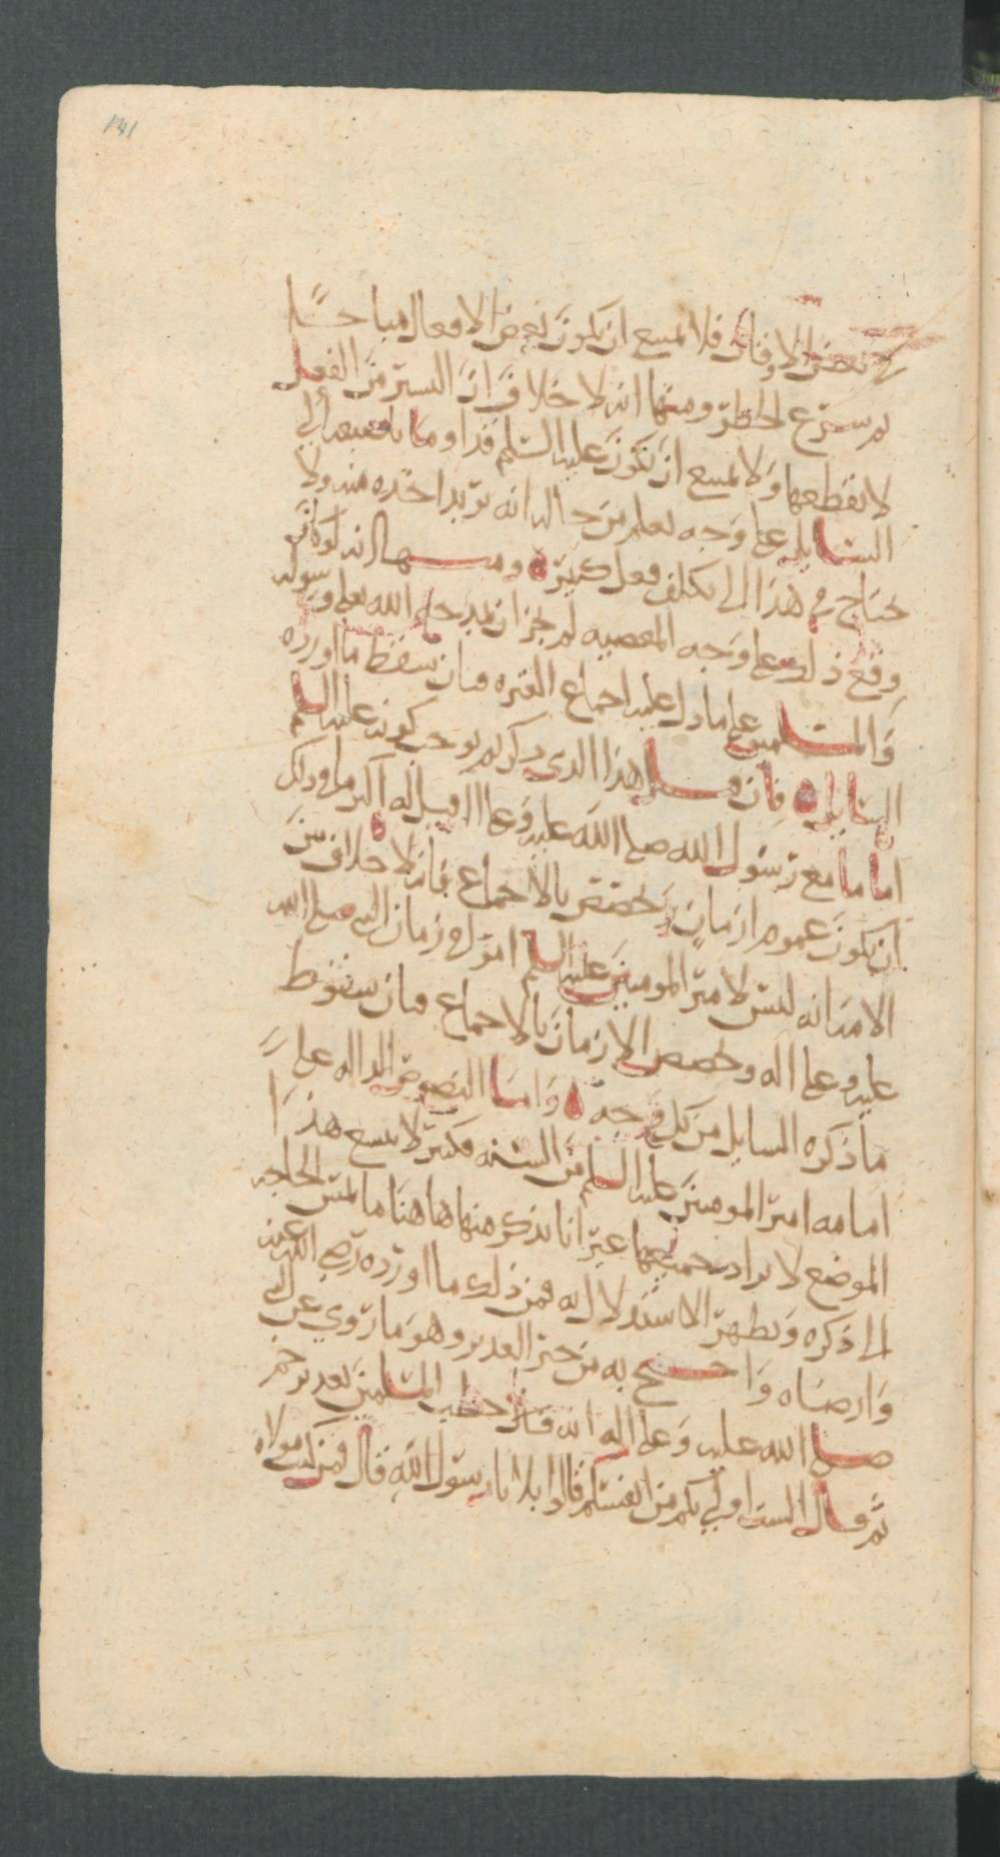 141
في بعض الاوقات فلا يمنع ان يكون بعض الافعال مباحًا
ثم شرع الحظر ومنها انه لا خلاف ان اليسير من الفعل
لا يقطعها ولا يمنع ان يكون عليه السلم قد اوما باصبعه الى
السايل على وجه يعلم من حاله انه يريد اخذه منه ولا
يحتاج في هذا الى تكلف فعل كثير ه ومنها انه لو كان
وقع ذلك على وجه المعصيه لم يجز ان يمدحه الله تعلى ورسوله
والمسلمين على ما دل عليه اجماع العتره فبان سقوط ما اورده
السايل ه فان قيل هذا الذي ذكرتم يوجب كونه عليه السلم
اماما مع رسول الله صلى الله عليه وعلى اله قيل له اكثر ما في ذلك
ان يكون عموم ازمان يختص بالاجماع فانه لا خلاف بين
الامه انه ليس لامير المومنين عليه السلم امر في زمان النبي صلى الله
عليه وعلى اله وخصص الازمان بالاجماع فبان سقوط
ما ذكره السايل من كل وجه ه واما النصوص الداله على
امامه امير المومنين عليه السلم من السنه فكثير لا يسع هذا
الموضع لايراد جميعها غير انا نذكر منها هاهنا ما تمس الحاجه
الى ذكره ويظهر الاستدلال به فمن ذلك ما اورده رضي الله عنه
وارضاه واحتج به من خبر الغدير وهو ما روي عن النبي
صلى الله عليه وعلى اله انه قال خطب المسلمين بغدير خم
ثم قال الست اولى بكم من انفسكم قالوا بلا يا رسول الله قال فمن كنت مولاه